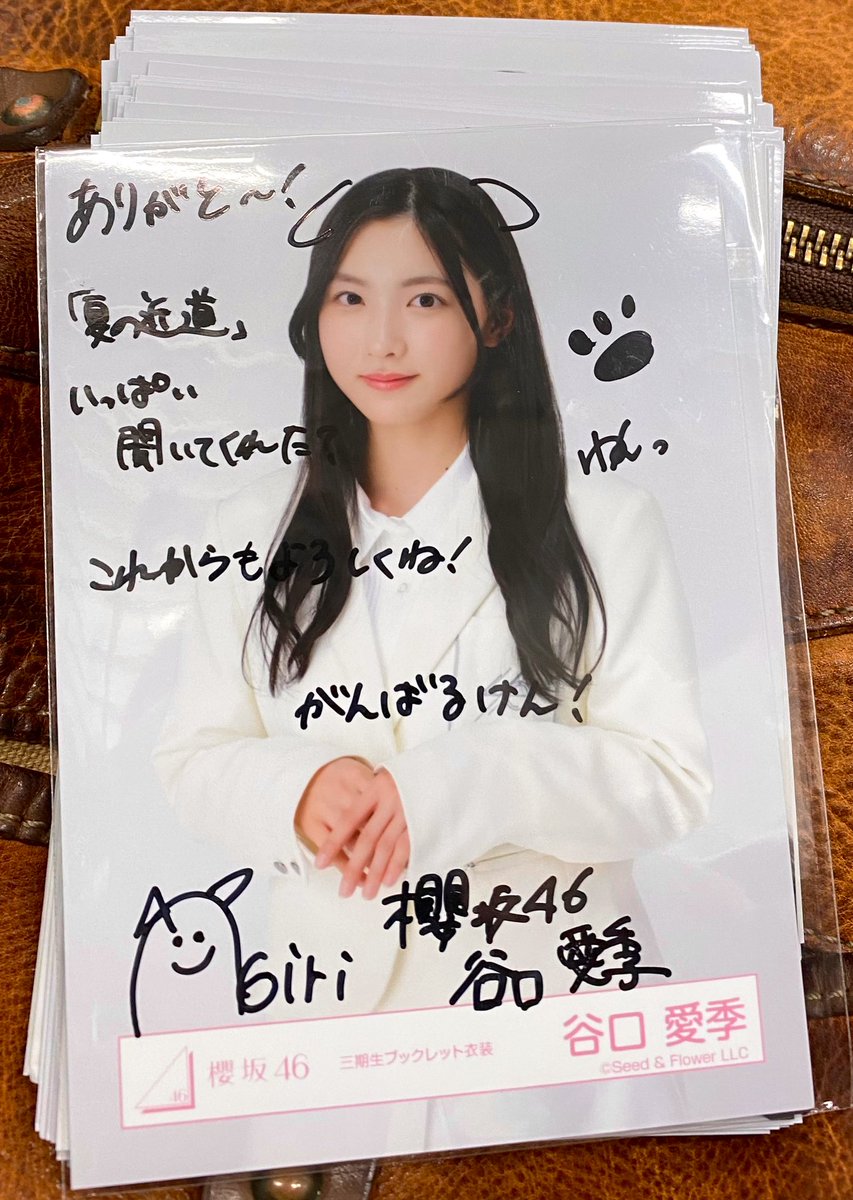 ありがと～!
「夏の近道」
いっぱい
聞いてくれたて
けんっ
これからもよろしくね!
がんばるけん!
airi
櫻坂46
谷口 愛季
櫻坂46 三期生ブックレット衣装 谷口 愛季
©Seed & Flower LLC
46